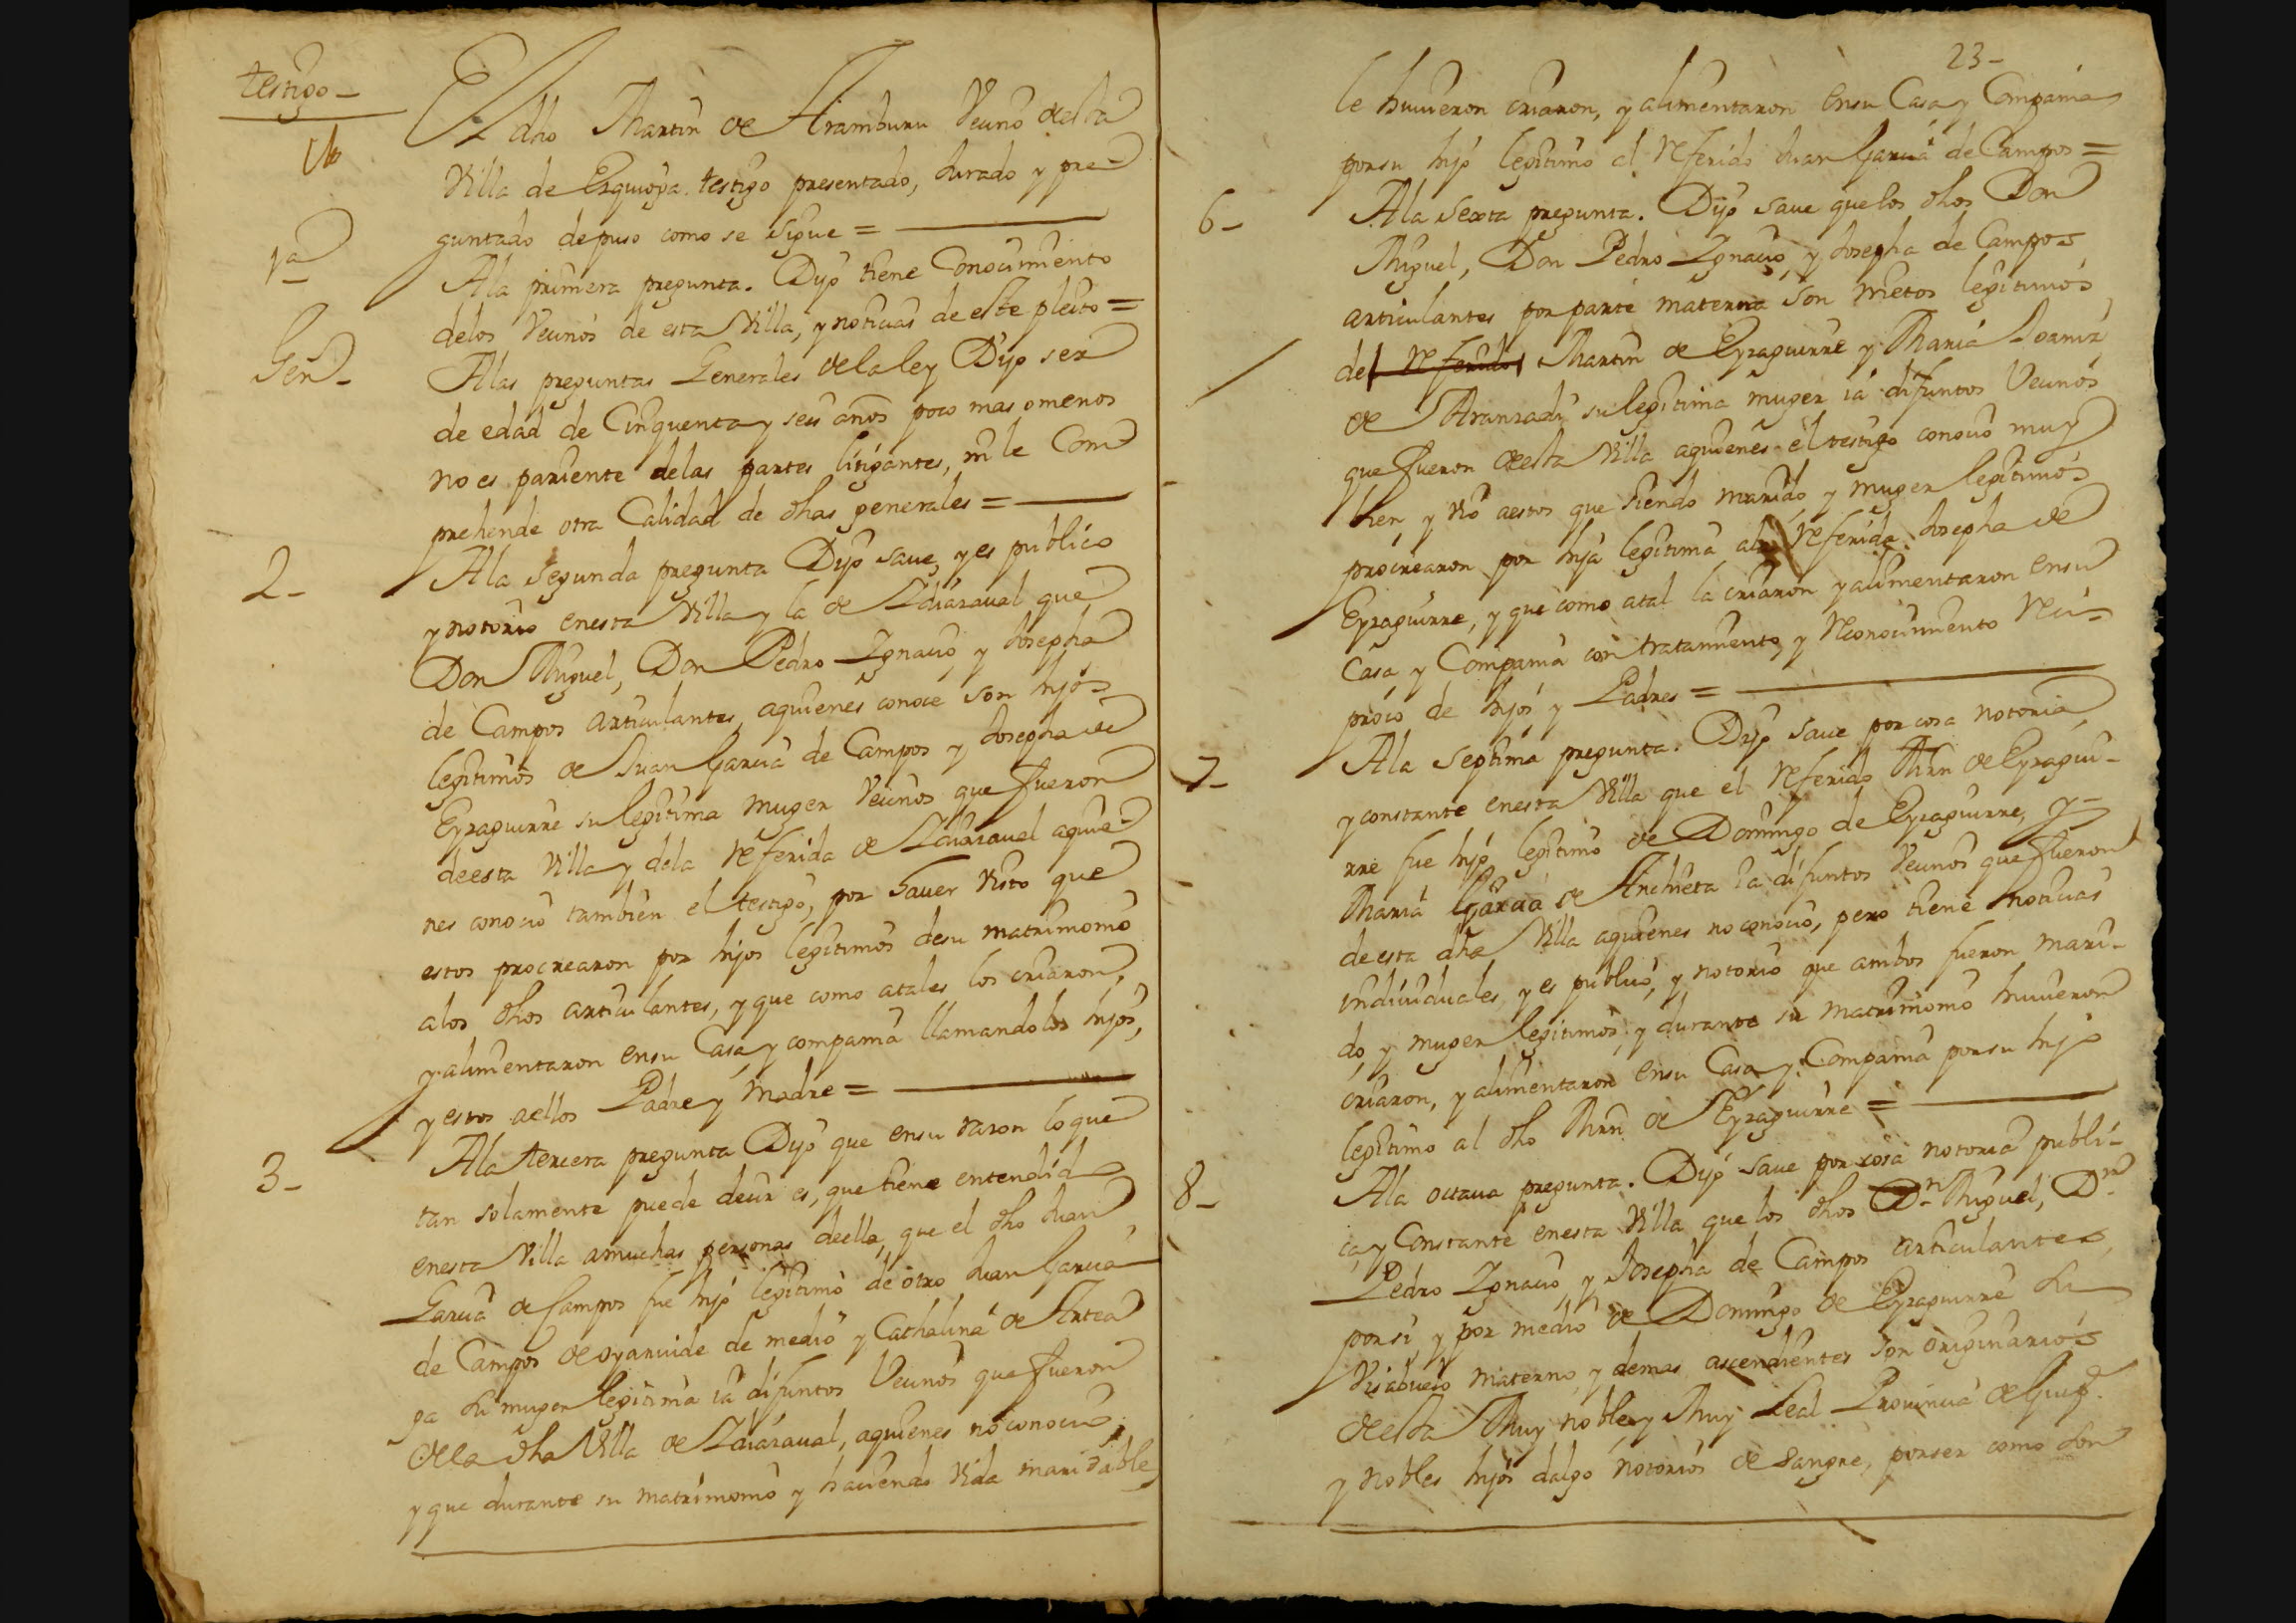 testigo -
El dho Martin de Aramburu Vecino desta
Villa de Ezquioga testigo presentado, Jurado y pre-
guntado depuso como se sigue =
1a
Ala primera pregunta. Dijo tiene Conocimiento
delos Vecinos de esta Villa, y noticias de este pleito =
Gen-
Alas preguntas Generales dela ley Dijo ser
de edad de Cinquenta y seis años poco mas omenos
no es pariente delas partes litigantes, ni le Com
prehende otra Calidad de dhas generales =
2-
Ala segunda pregunta Dijo saue, y es publico
y notorio enesta Villa y la de Zdiazaual que
Don Miguel, Don Pedro Ygnacio, y Josepha
de Campos articulantes, aquienes conoce son hijos
legitimos de Juan Garcia de Campos y Josepha de
Eyzaguirre su legitima muger Vecinos que fueron
deesta Villa y dela referida de Zdiazaual aquie-
nes conocio tambien el testigo, por hauer visto que
estos procrearon por hijos legitimos desu matrimonio
alos dhos articulantes, y que como atales los criaron,
y alimentaron ensu Casa, y compania llamandolos hijos,
y estos aellos Padre y Madre =
3-
Ala tercera pregunta Dijo que ensu razon loque
tan solamente puede decir es, que tiene entendido
enesta Villa amuchas personas deella, que el dho Juan
Garcia de Campos fue hijo legitimo de otro Juan Garcia
de Campos de oyaruide de medio y Cathalina de Artea
ga su muger legitima ia difuntos Vecinos que fueron
dela dha Villa de Zdiazaual, aquienes no conocio,
y que durante su matrimonio y haciendo vida maridable
23-
le huuieron criaron, y alimentaron ensu Casa, y Compania
porsu hijo legitimo el referido Juan Garcia de Campos =
6-
Ala Sexta pregunta. Dijo saue quelos dhos Don
Miguel, Don Pedro Ygnacio, y Josepha de Campos
articulantes por parte materna son nietos legitimos
del referido Martin de Eyzaguirre y Maria Joaniz
de Aranzadi su legitima muger ia difuntos Vecinos
que fueron deesta Villa aquienes el testigo conocio muy
bien, y vio aestos que siendo marido, y muger legitimos
procrearon por hija legitima ala referida Josepha de
Eyzaguirre, y que como atal la criaron y alimentaron ensu
Casa y Compania con tratamiento, y reconocimiento reci-
proco de hijos y Padres =
7-
Ala septima pregunta. Dijo saue por cosa notoria
y constante enesta Villa que el referido Mrn de Eyzagui-
rre fue hijo legitimo de Domingo de Eyzaguirre, y-
Maria Garcia de Anchieta ia difuntos Vecinos que fueron
deesta dha Villa aquienes no conocio, pero tiene noticias
indiuiduales, y es publico, y notorio que ambos fueron mari-
do, y muger legitimos, y durante su matrimonio huuieron
criaron, y alimentaron ensu Casa y Compania porsu hijo
legitimo al dho Mrn de Eyzaguirre =
8-
Ala octaua pregunta. Dijo saue por cosa notoria publi-
ca, y Constante enesta Villa que los dhos Dn Miguel, Dn
Pedro Ygnacio, y Josepha de Campos articulantes,
porsi y por medio de Domingo de Eyzaguirre su
Visabuelo materno, y demas ascendientes son originarios
desta Muy noble, y Muy Leal Prouincia de Guipa.
y nobles hijos dalgo notorios de sangre, porser como son